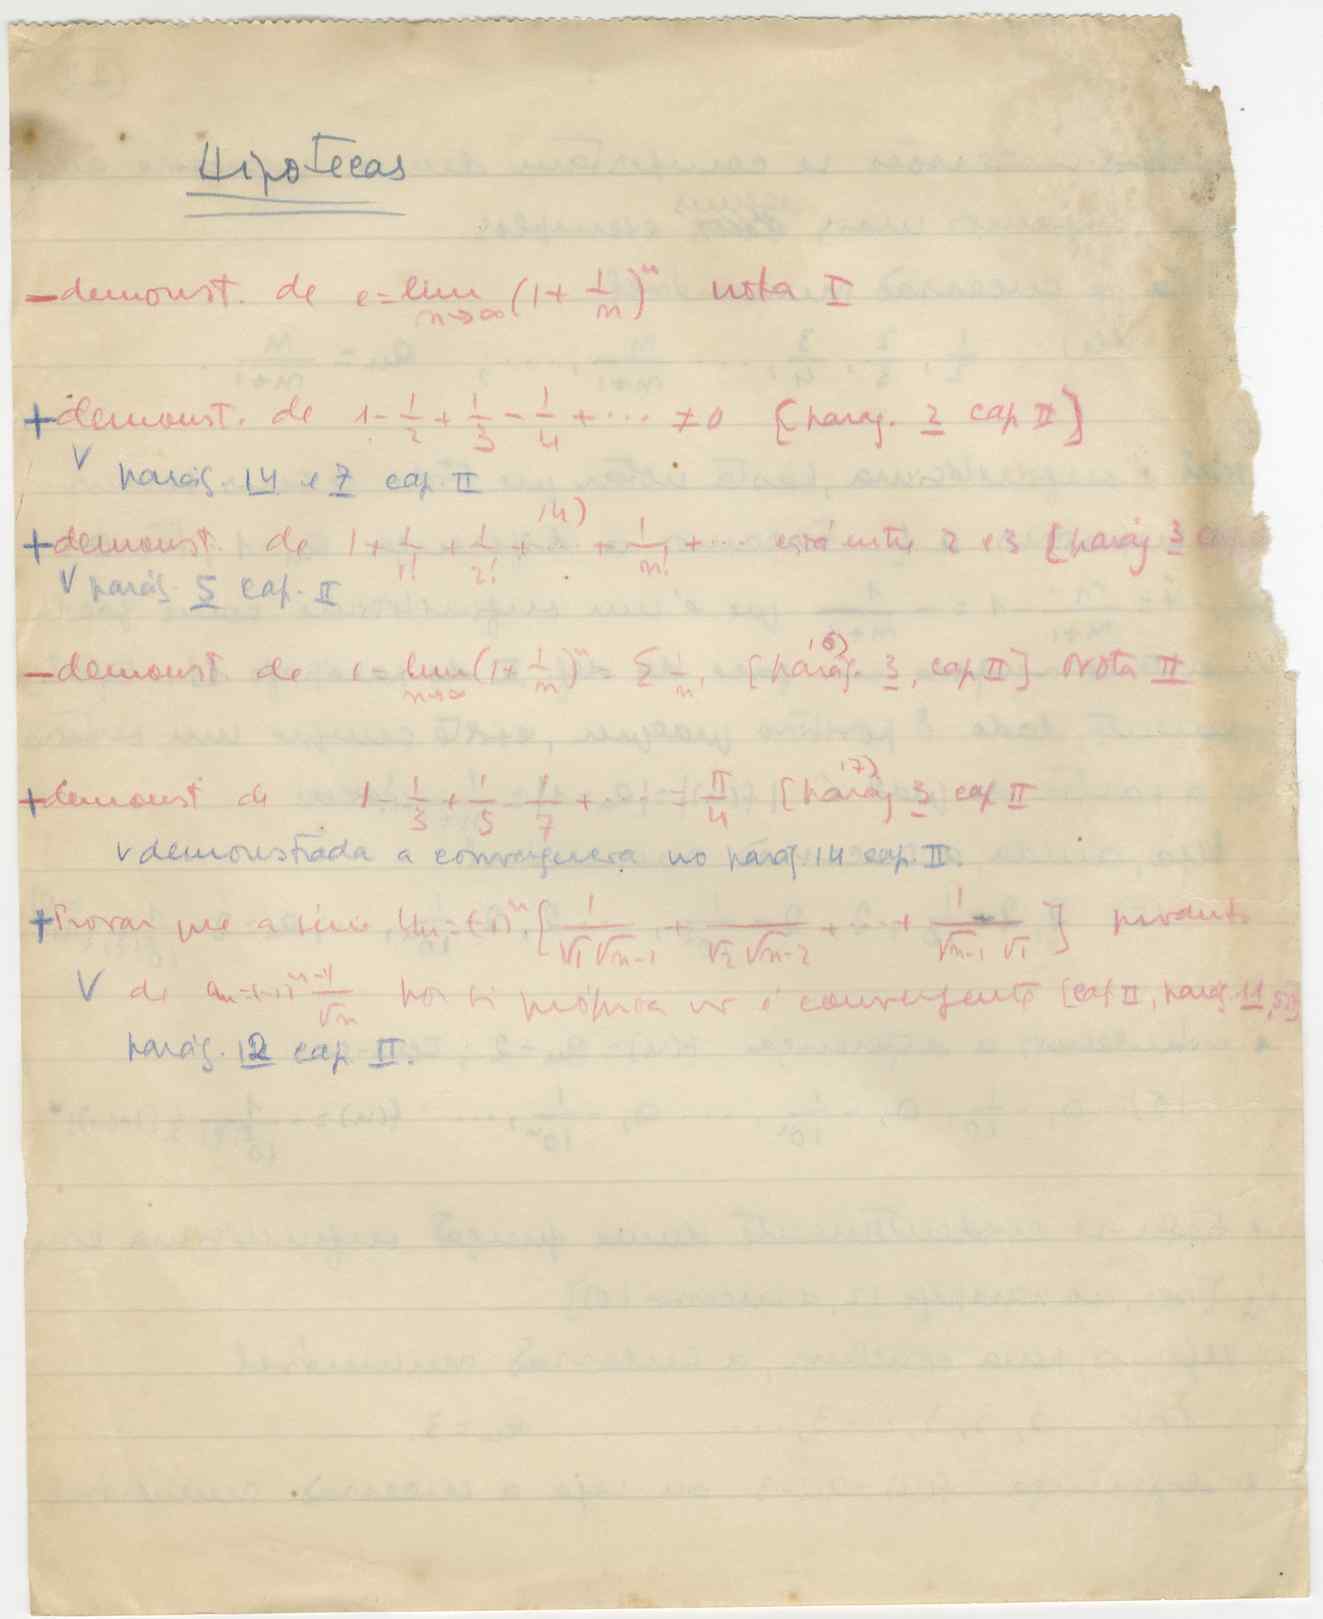 Hipotecas
– demonst. de e = lim n→∞ (1 + 1/n)^n nota I
+ demonst. de 1 - 1/2 + 1/3 - 1/4 + ··· ≠ 0 [parág. 2 cap II]
V parág. 14 e 7 cap. II
+ demonst. de 1 + 1/1! + 1/2! + ··· + 1/n! + ··· está entre 2 e 3 [parág 3 14) cap
V parág. 5 cap. II
– demonst. de e = lim n→∞ (1 + 1/n)^n = Σ 1/n! [parág. 3, 16) cap II] Nota II
+ demonst de 1 - 1/3 + 1/5 - 1/7 + ··· = π/4 [parág 3 17) cap II
V demonstrada a convergencia no parág 14 cap. II.
+ Provar que a série Un = (-1)^n [1/√1√n-1 + 1/√2√n-2 + ··· + 1/√n-1 √1] produto
V de an = (-1)^n-1 1/√n por si própria não é convergente [cap II, parág. 11,
parág. 12 cap II.